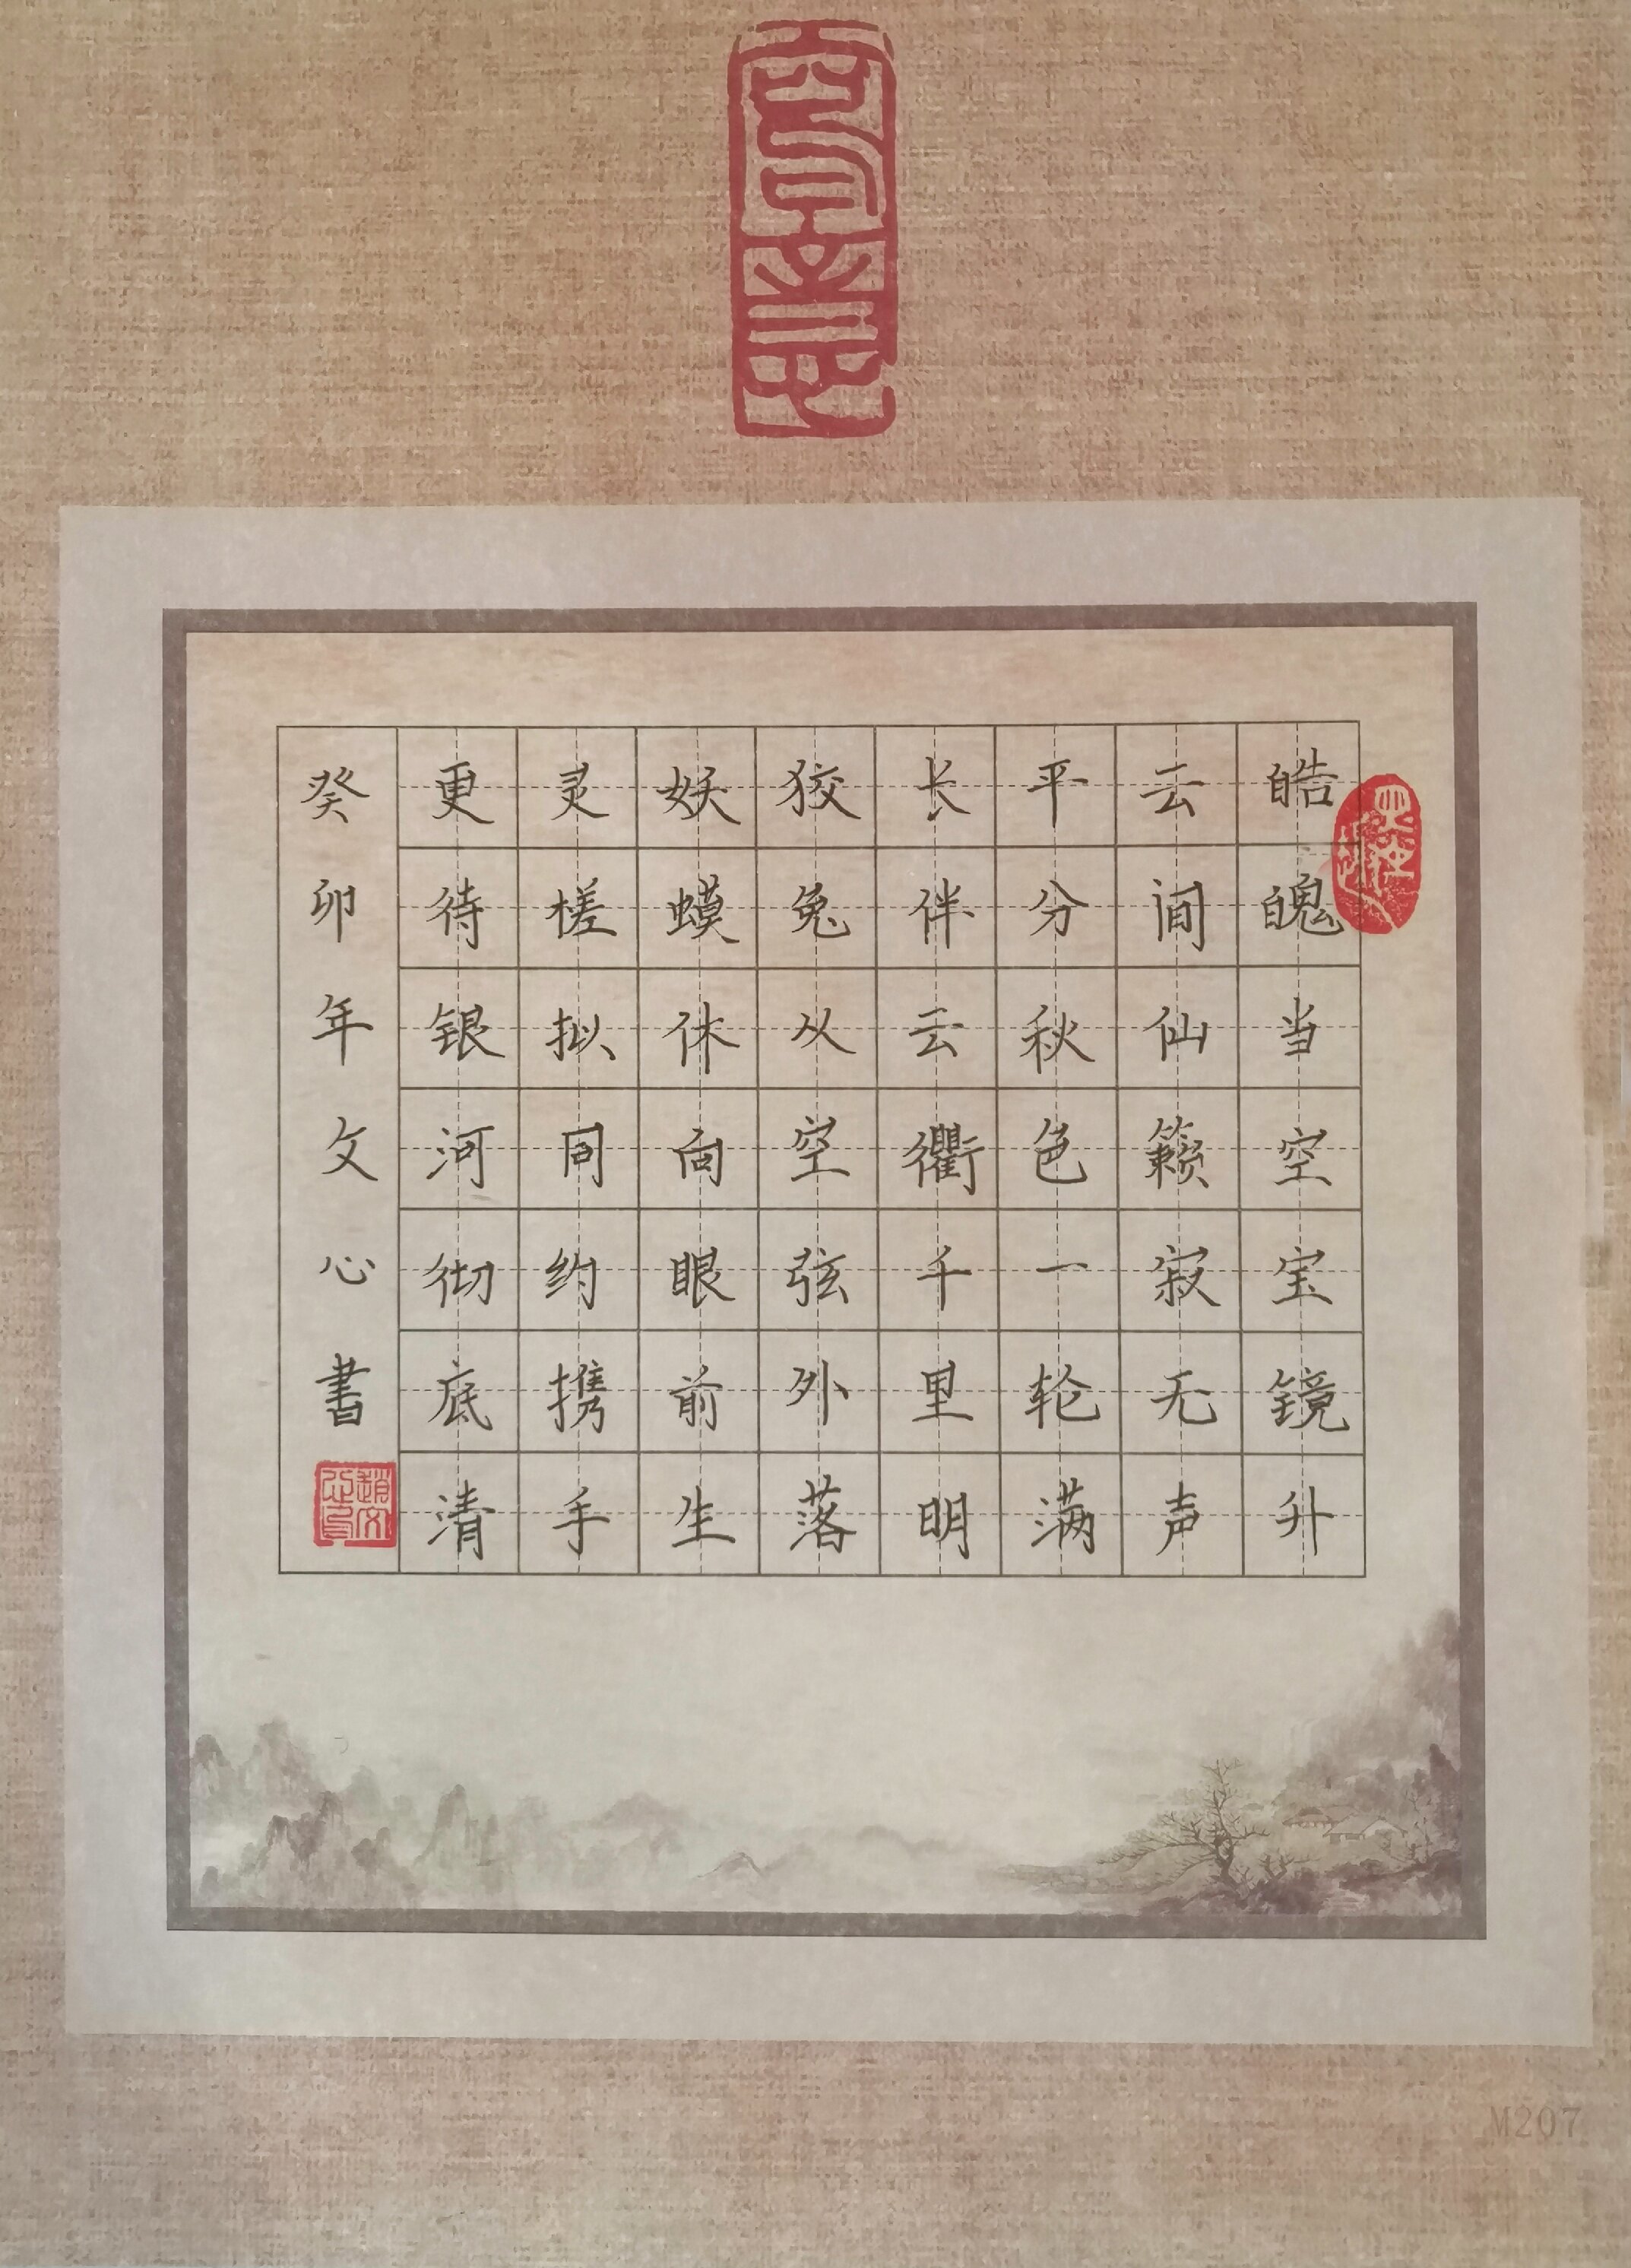 皓魄当空宝镜升
云间仙籁寂无声
平分秋色一轮满
长伴云衢千里明
狡兔从空弦外落
妖蟆休向眼前生
灵槎拟同约携手
更待银河彻底清
癸卯年文心書
M207